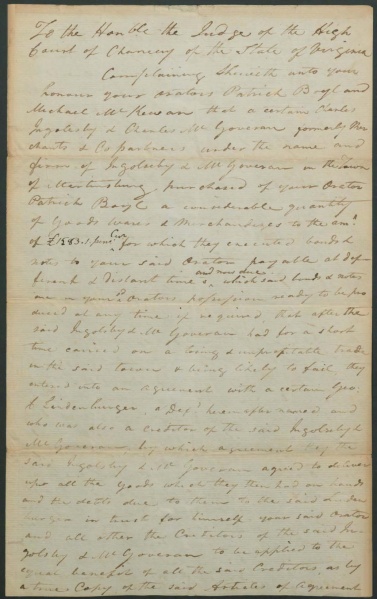 To the Honble the Judge of the High
Court of Chancery of the State of Virginia
Complaining Sheweth unto your
honour your orators Patrick Boyl and
Michael McKewan that a certain
Ingolesby & Charles McGoveran formerly Mer
chants & Copartners under the name and
firm of Ingolesby & McGoveran in the Town
of Martinsburg, purchased of your Orator
Patrick Boyl a considerable quantity
of Goods wares & Merchandizes to the amt.
of for which they executed bonds &
notes to your said Orator payable at dif
ferent & distant times and now due which said bonds & notes
are in your Orators possession ready to be pro
duced at any time if required, that after the
said Ingolsby & McGoveran had for a short
time carried on a losing & unprofitable trade
in the said town & being likely to fail, they
entered into an agreement with a certain Geo.
Lindenburger, a Deft. hereinafter named and
who was also a creditor of the said Ingolsby &
McGoveran, by which agreement they the
said Ingolsby & McGoveran agreed to deliver
up all the Goods which they then had on hands
and the debts due to them to the said Linden
burger in trust for himself your said Orator
and all other the Creditors of the said In
golsby & McGoveran to be applied to the
equal benefit of all the said Creditors as by
a true Copy of the said Articles of Agreement